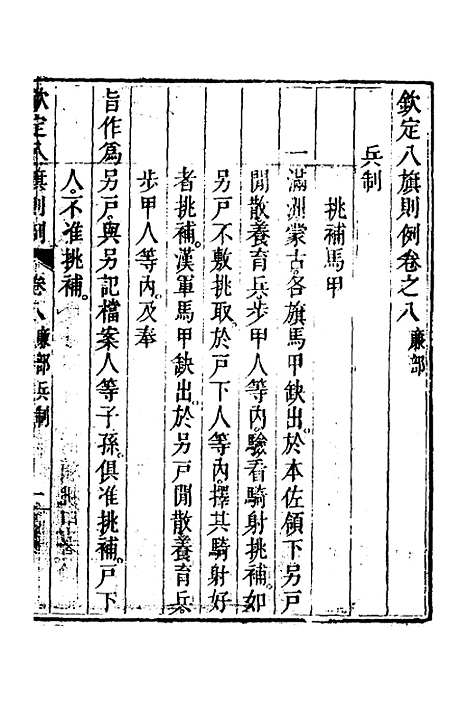 欽定八旗則例卷之八 廉部
兵制
挑補馬甲
一滿洲蒙古各旗馬甲缺出於本佐領下另戶
閒散養育兵步甲人等內。驗看騎射挑補。如
另戶不敷挑取於戶下人等內。擇其騎射好
者挑補。漢軍馬甲缺出於另戶閒散養育兵
步甲人等內。及奉
旨作為另戶。與另記檔案人等子孫。俱准挑補。戶下
人。不准挑補。
欽定八旗則例 卷八 廉部 兵制 一